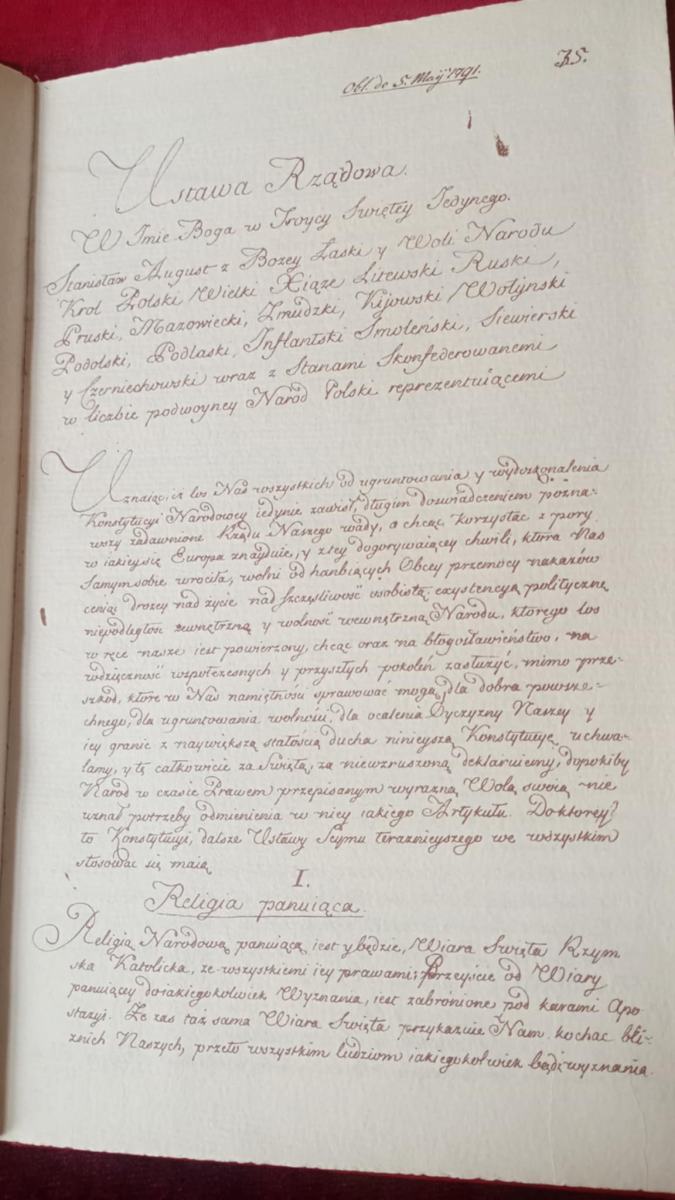 35.
Obl. de 5. Maij 1791.
Ustawa Rządowa.
W Imie Boga w Troycy Swiętey Jedynego.
Stanisław August z Bozey Łaski y Woli Narodu
Krol Polski, Wielki Xiąze Litewski Ruski,
Pruski, Mazowiecki, Zmudzki, Kijowski, Wołyński,
Podolski, Podlaski, Inflantski Smoleński, Siewierski
y Czerniechowski wraz z Stanami Skonfederowanemi
w liczbie podwoyney Naród Polski reprezentuiącemi
Uznaiąc, iż los Nas wszystkich od ugruntowania y wydoskonalenia
Konstytucyi Narodowey iedynie zawisł, długim doswiadczeniem pozna-
wszy zadawnione Rządu Naszego wady, a chcąc korzystać z pory
w iakieysię Europa znayduie, y z tey dogorywaiącey chwili, która Nas
samym sobie wrociła, wolni od hanbiących Obcey przemocy nakazów
ceniąc drozey nad życie, nad szczęsliwość osobistą, exystencyą polityczną
niepodległość zewnętrzną y wolność wewnętrzną Narodu, ktorego los
w ręce nasze iest powierzony, chcąc oraz na błogosławieństwo, na
wdzięczność wspołczesnych y przyszłych pokoleń zasłużyć, mimo prze-
szkod, ktore w Nas namiętności sprawować mogą, dla dobra powsze-
chnego, dla ugruntowania wolności, dla ocalenia Oyczyzny Naszey y
iey granic z naywiększą stałością ducha ninieyszą Konstytucyę uchwa-
lamy, y tę całkowicie za Swiętą, za niewzruszoną deklaruiemy, dopokiby
Naród w czasie Prawem przepisanym wyrazną Wolą swoią nie
uznał potrzeby odmienienia w niey iakiego Artykułu. Do ktorey?
to Konstytucyi, dalsze Ustawy Seymu teraznieyszego we wszystkim
stosować się maią
I.
Religia panuiąca.
Religią Narodową panuiącą iest y będzie, Wiara Swięta Rzym
ska Katolicka, ze wszystkiemi iey prawami; Przeyscie od Wiary
panuiącey do iakiegokolwiek Wyznania, iest zabronione pod karami Apo
stazyi. Ze zas taż sama Wiara Swięta przykazuie Nam kochac bli-
znich Naszych, przeto wszystkim ludziom iakiegokolwiek bądź wyznania